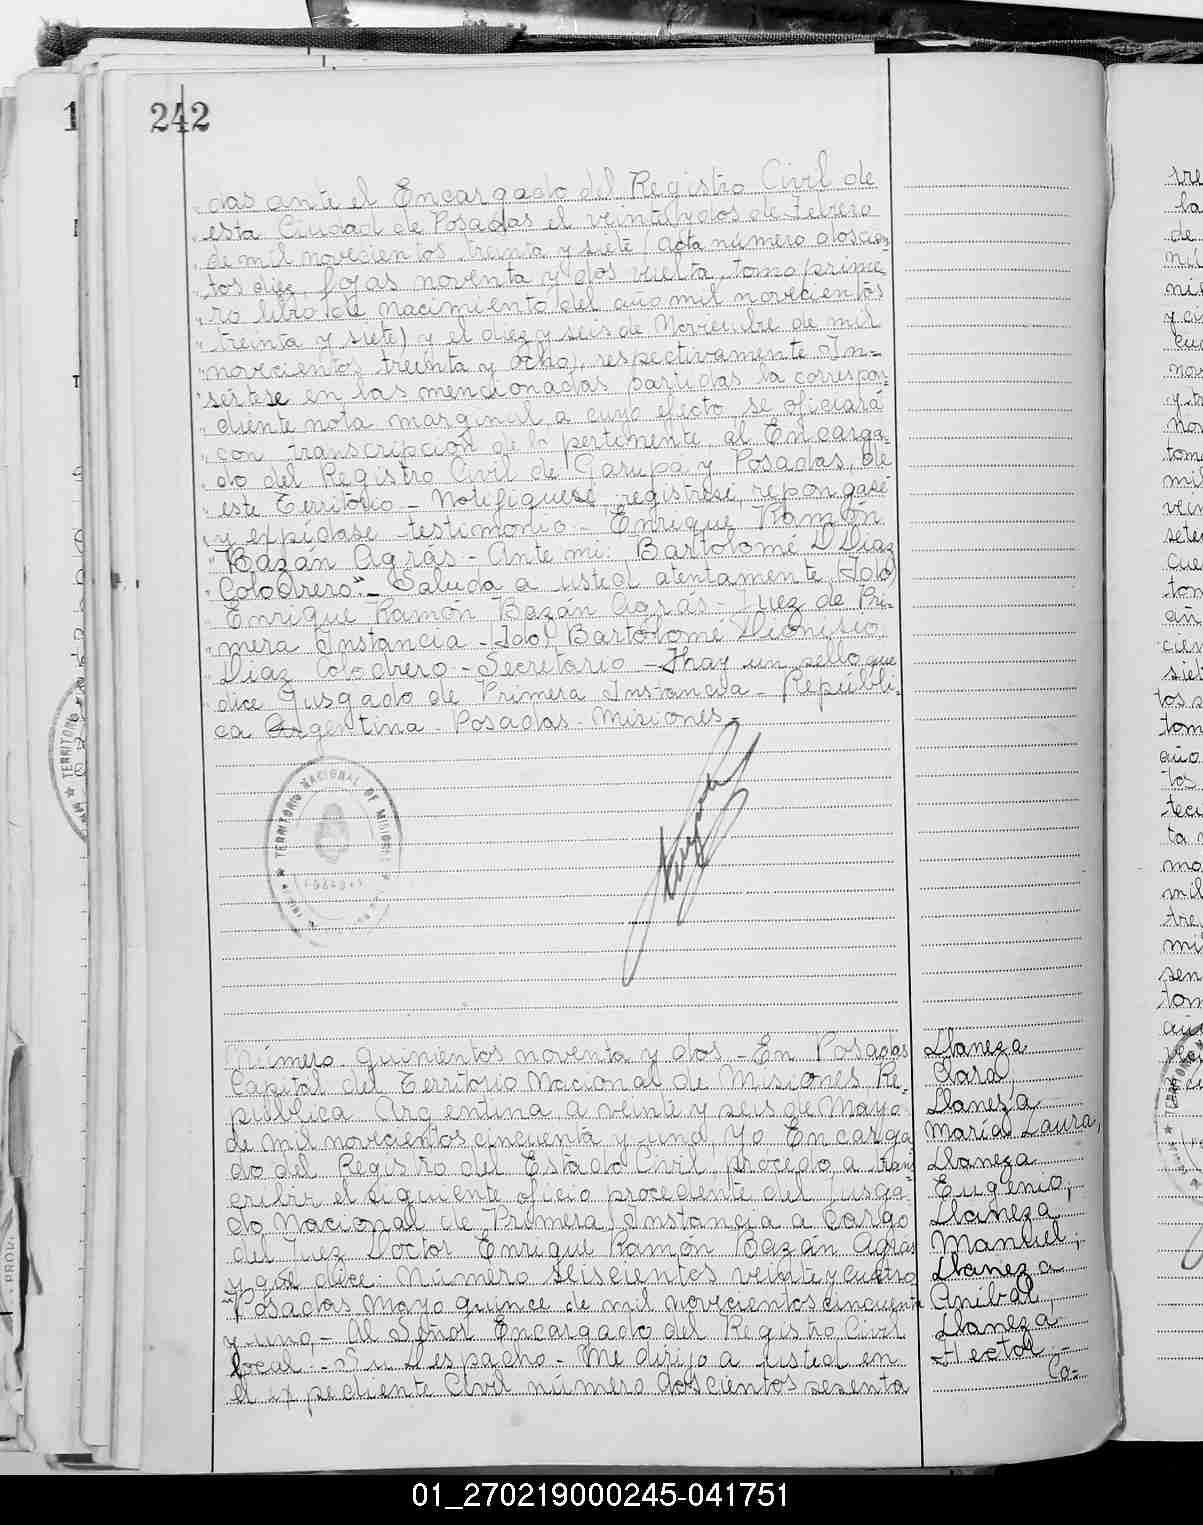 242
das ante el Encargado del Registro Civil de
esta Ciudad de Posadas el veintiydos de Febrero
de mil novecientos treinta y siete (acta número doscien-
tos diez, fojas noventa y dos vuelta, tomo prime
ro libro de nacimiento del año mil novecientos
treinta y siete) y el diez y seis de Noviembre de mil
novecientos treinta y ocho), respectivamente. In=
sértese en las mencionadas partidas la correspon-
diente nota marginal a cuyo efecto se oficiará
con transcripción de lo pertinente, al Encarga=
do del Registro Civil de Garupá y Posadas, de
este Territorio - Notifíquese, regístrese, repongase
y expídase testimonio - Enrique Ramón
Bazán Agras - Ante mi: Bartolomé D Diaz
Colodrero". - Saluda a usted atentamente (Fdo)
Enrique Ramón Bazán Agrás - Juez de Pri-
mera Instancia - Fdo) Bartólomé Dionisio
Diaz Colodrero - Secretario - Hay un sello que
dice Jusgado de Primera Instancia - Repúbli-
ca Argentina - Posadas - Misiones -
TERRITORIO NACIONAL DE MISIONES
POSADAS
Número quinientos noventa y dos - En Posadas
Capital del Territorio Nacional de Misiones Re-
pública Argentina a veinte y seis de Mayo
de mil novecientos cincuenta y uno, Yo Encarga
do del Registro del Estado Civil, procedo a trans
cribir el siguiente oficio procedente del Jusga-
do Nacional de Primera Instancia a Cargo
del Juez Doctor Enrique Ramón Bazán Agrás
y que dice: Número seiscientos veinte y cuatro
"Posadas Mayo quince de mil novecientos cincuenta
y uno, - Al Señor Encargado del Registro Civil
local - Su Despacho - Me dirijo a usted en
el expediente Civil número doscientos sesenta
Llaneza
Clara,
Llaneza
María Laura,
Llaneza
Eugenio;
Llaneza
Manuel;
Llaneza
Anibal,
Llaneza
Hector -
Co=
01_270219000245-041751